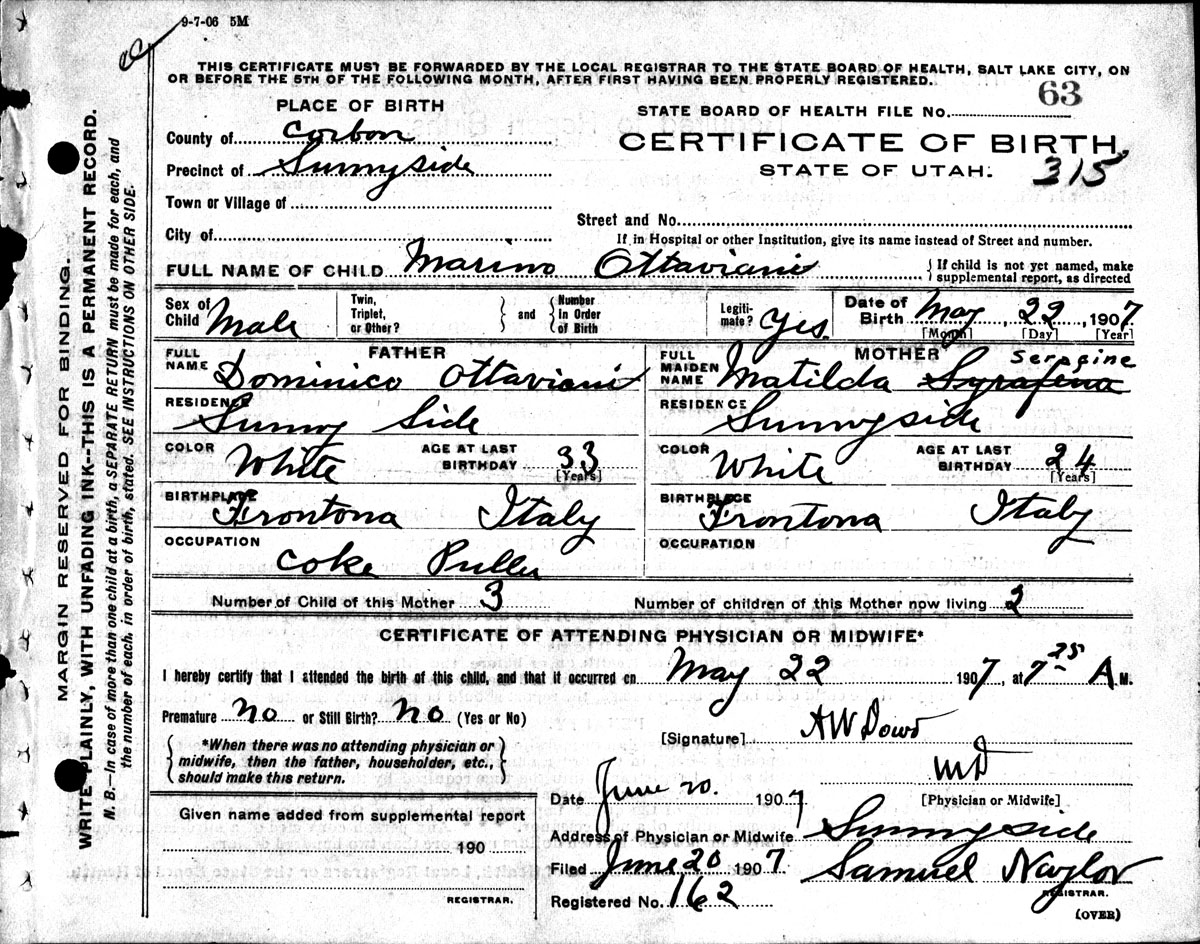 9-7-06 5M
THIS CERTIFICATE MUST BE FORWARDED BY THE LOCAL REGISTRAR TO THE STATE BOARD OF HEALTH, SALT LAKE CITY, ON
OR BEFORE THE 5TH OF THE FOLLOWING MONTH, AFTER FIRST HAVING BEEN PROPERLY REGISTERED.
MARGIN RESERVED FOR BINDING.
WRITE PLAINLY, WITH UNFADING INK--THIS IS A PERMANENT RECORD.
N. B.—In case of more than one child at a birth, a SEPARATE RETURN must be made for each, and
the number of each, in order of birth, stated. SEE INSTRUCTIONS ON OTHER SIDE.
PLACE OF BIRTH
County of Corbon
Precinct of Sunnyside
Town or Village of
City of
STATE BOARD OF HEALTH FILE No. 63
CERTIFICATE OF BIRTH
STATE OF UTAH. 315
Street and No.
If in Hospital or other Institution, give its name instead of Street and number.
FULL NAME OF CHILD Marino Ottaviani { If child is not yet named, make
supplemental report, as directed
Sex of Child Male
Twin, Triplet, or Other? } and { Number In Order of Birth
Legiti-mate? Yes.
Date of Birth May, 22, 1907
[Month] [Day] [Year]
FATHER
FULL NAME Dominico Ottaviani
RESIDENCE Sunny Side
COLOR White AGE AT LAST BIRTHDAY 33 [Years]
BIRTHPLACE Frontona Italy
OCCUPATION Coke Puller
MOTHER
FULL MAIDEN NAME Matilda Syrafena Serafine
RESIDENCE Sunnyside
COLOR White AGE AT LAST BIRTHDAY 24 [Years]
BIRTHPLACE Frontona Italy
OCCUPATION
Number of Child of this Mother 3 Number of children of this Mother now living 2
CERTIFICATE OF ATTENDING PHYSICIAN OR MIDWIFE*
I hereby certify that I attended the birth of this child, and that it occurred on May 22 1907, at 7 25 A M.
Premature no or Still Birth? no (Yes or No)
{ *When there was no attending physician or
midwife, then the father, householder, etc.,
should make this return. }
Given name added from supplemental report
190
REGISTRAR.
[Signature] AW Dowd
MD
[Physician or Midwife]
Date June 20. 1907
Address of Physician or Midwife Sunnyside
Filed June 20 1907 Samuel Naylor
REGISTRAR.
Registered No. 162
(OVER)